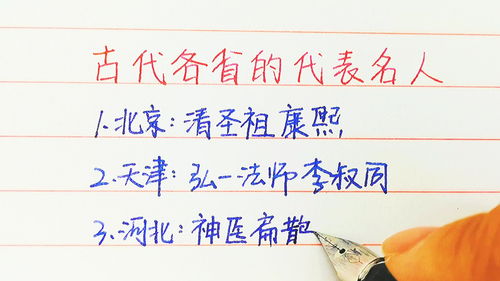 古代各省的代表名人
1.北京：清圣祖康熙
2.天津：弘一法师李叔同
3.河北：神医扁鹊